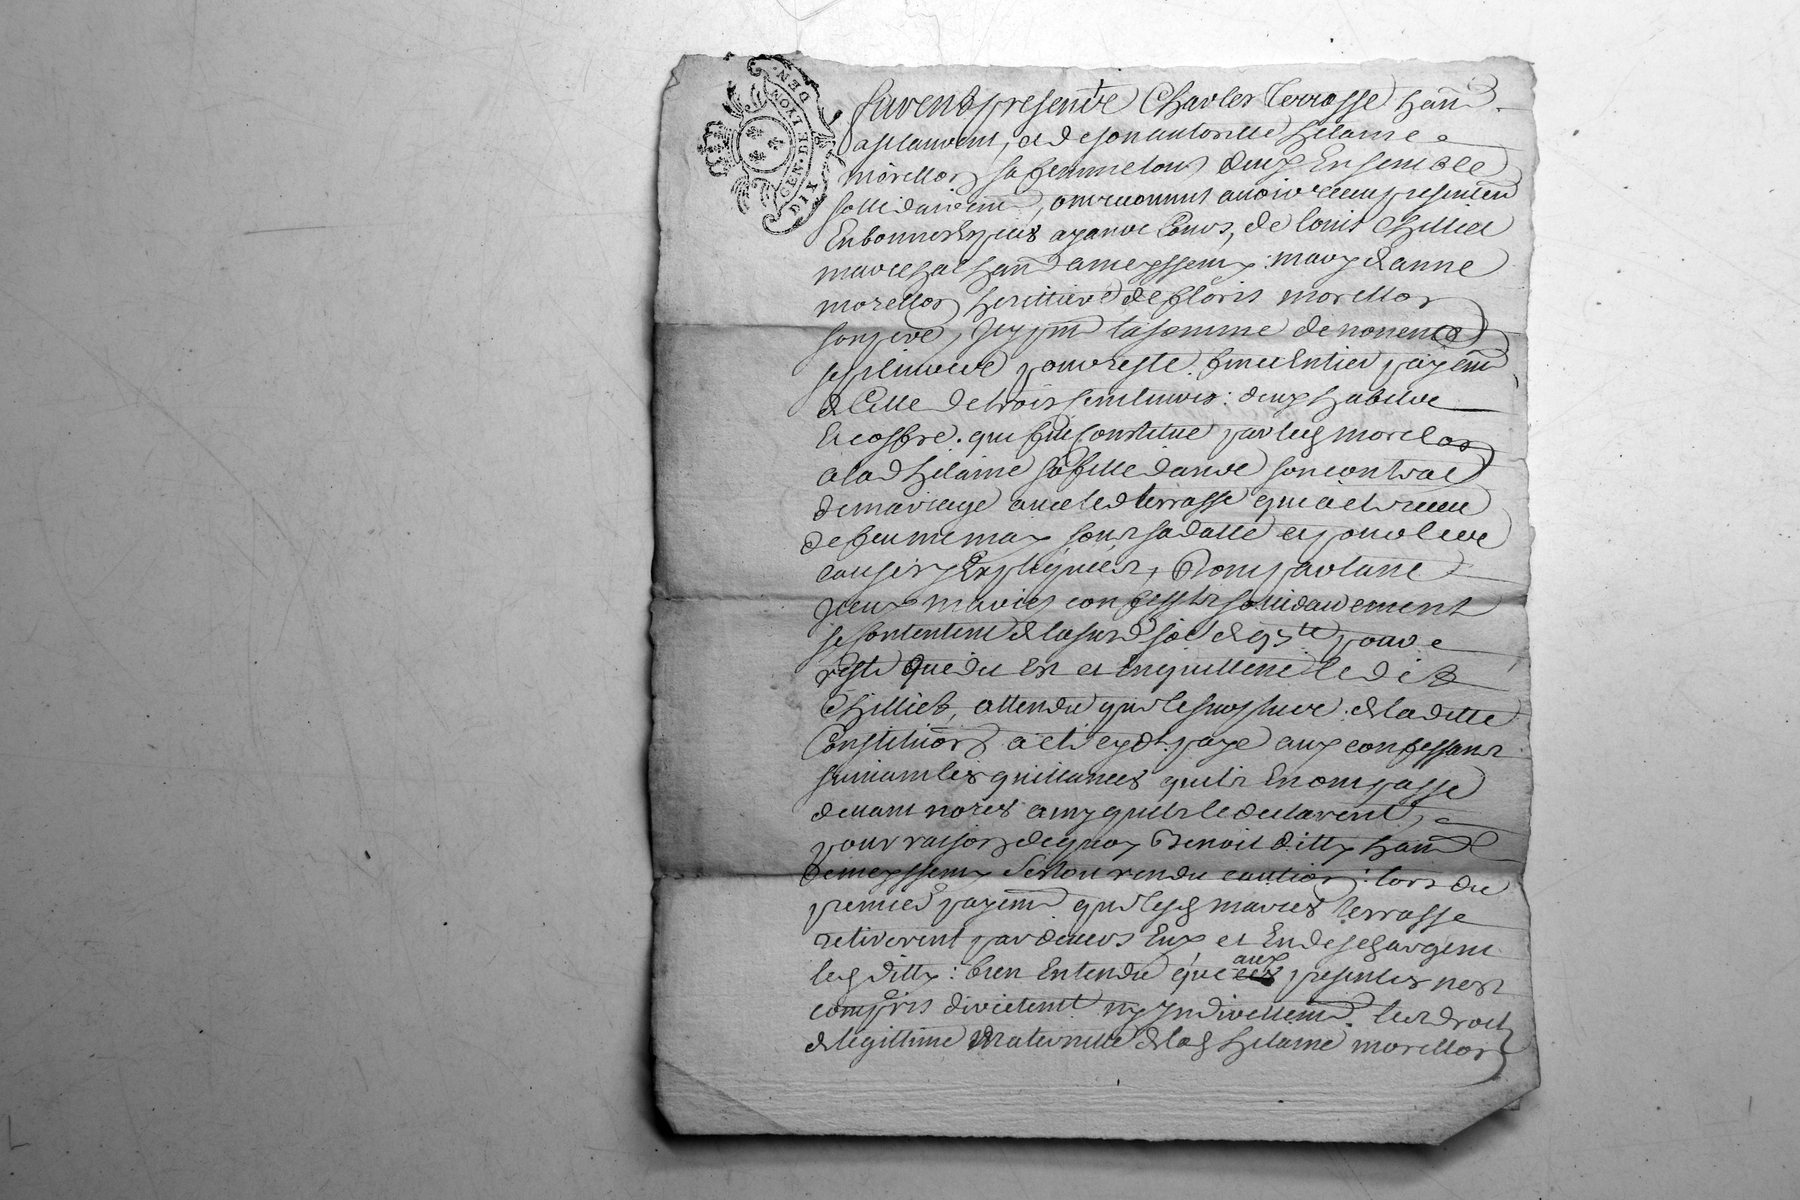 GEN. DE LYON
DIX DEN.
furent presente Charles Terrasse hant
a st laurent, et de son autoritte helaine
morellon sa femme tous deux Ensemble
ont reconnut avoir receu presentem
En bonnes Especes ayante Cours, de louis Chilliet
marechal hant a meyssieux: mary d anne
morellon herittiere de floris morellon
son pere, Icy pnt la somme de nonente
sept livres pour reste final Entier payemt
de Celle de trois sent livres: deux habits
Et coffre. qui fut Constitue par led morelon
a lad helaine sa fille dans son contrat
de mariage avec led terrasse qui a ete receu
de feu me may sous sa datte
Dont partant
Iceux maries confessants solidairement
se contentent de la susd so de 97 pour
reste que du Est et En quittent le dit
Chilliet, attendu que le surplus de la ditte
Constitution a ete cyd. paye aux confessants
suivant les quittances quils En ont passe
devant notres ainsy quils le declarent,
pour raison de quoy Benoit ditty hant
de meyssieux Sestoit rendu caution: lors du
premier payemt que lesd maries terrasse
retirerent par devers Eux et En deschargent
led ditty: bien Entendu que aux presentes nest
compris directemt ny Indirettemt. les droits
de legittime Maternelle de lad helaine morellon